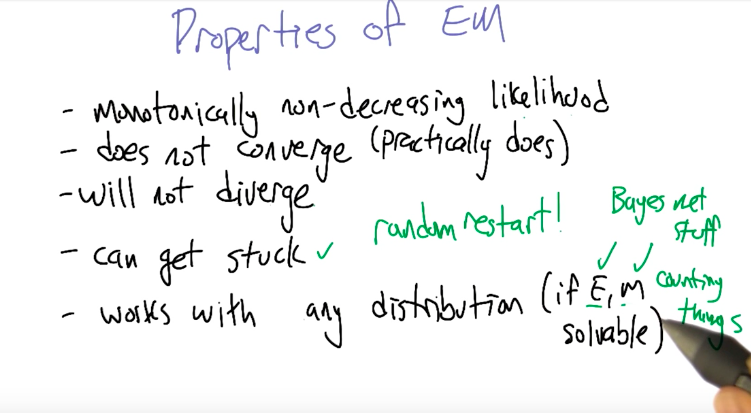 Properties of EM
- monotonically non-decreasing likelihood
- does not converge (practically does)
- will not diverge
- can get stuck ✓ random restart!
- works with any distribution (if E, M
solvable)
Bayes net
stuff
✓ ✓
counting
things